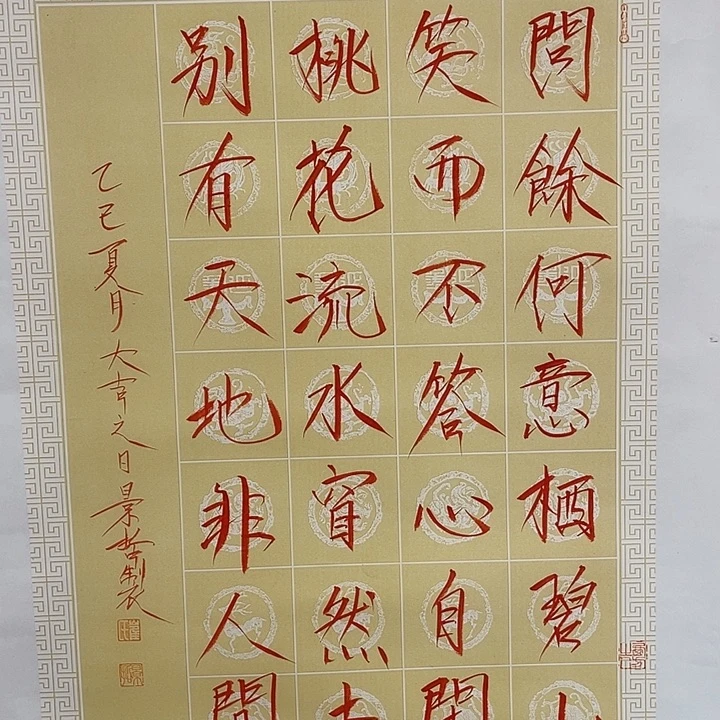 問餘何意栖碧
笑而不答心自
桃花流水窅然
別有天地非人
乙巳夏月大吉之日景哲製